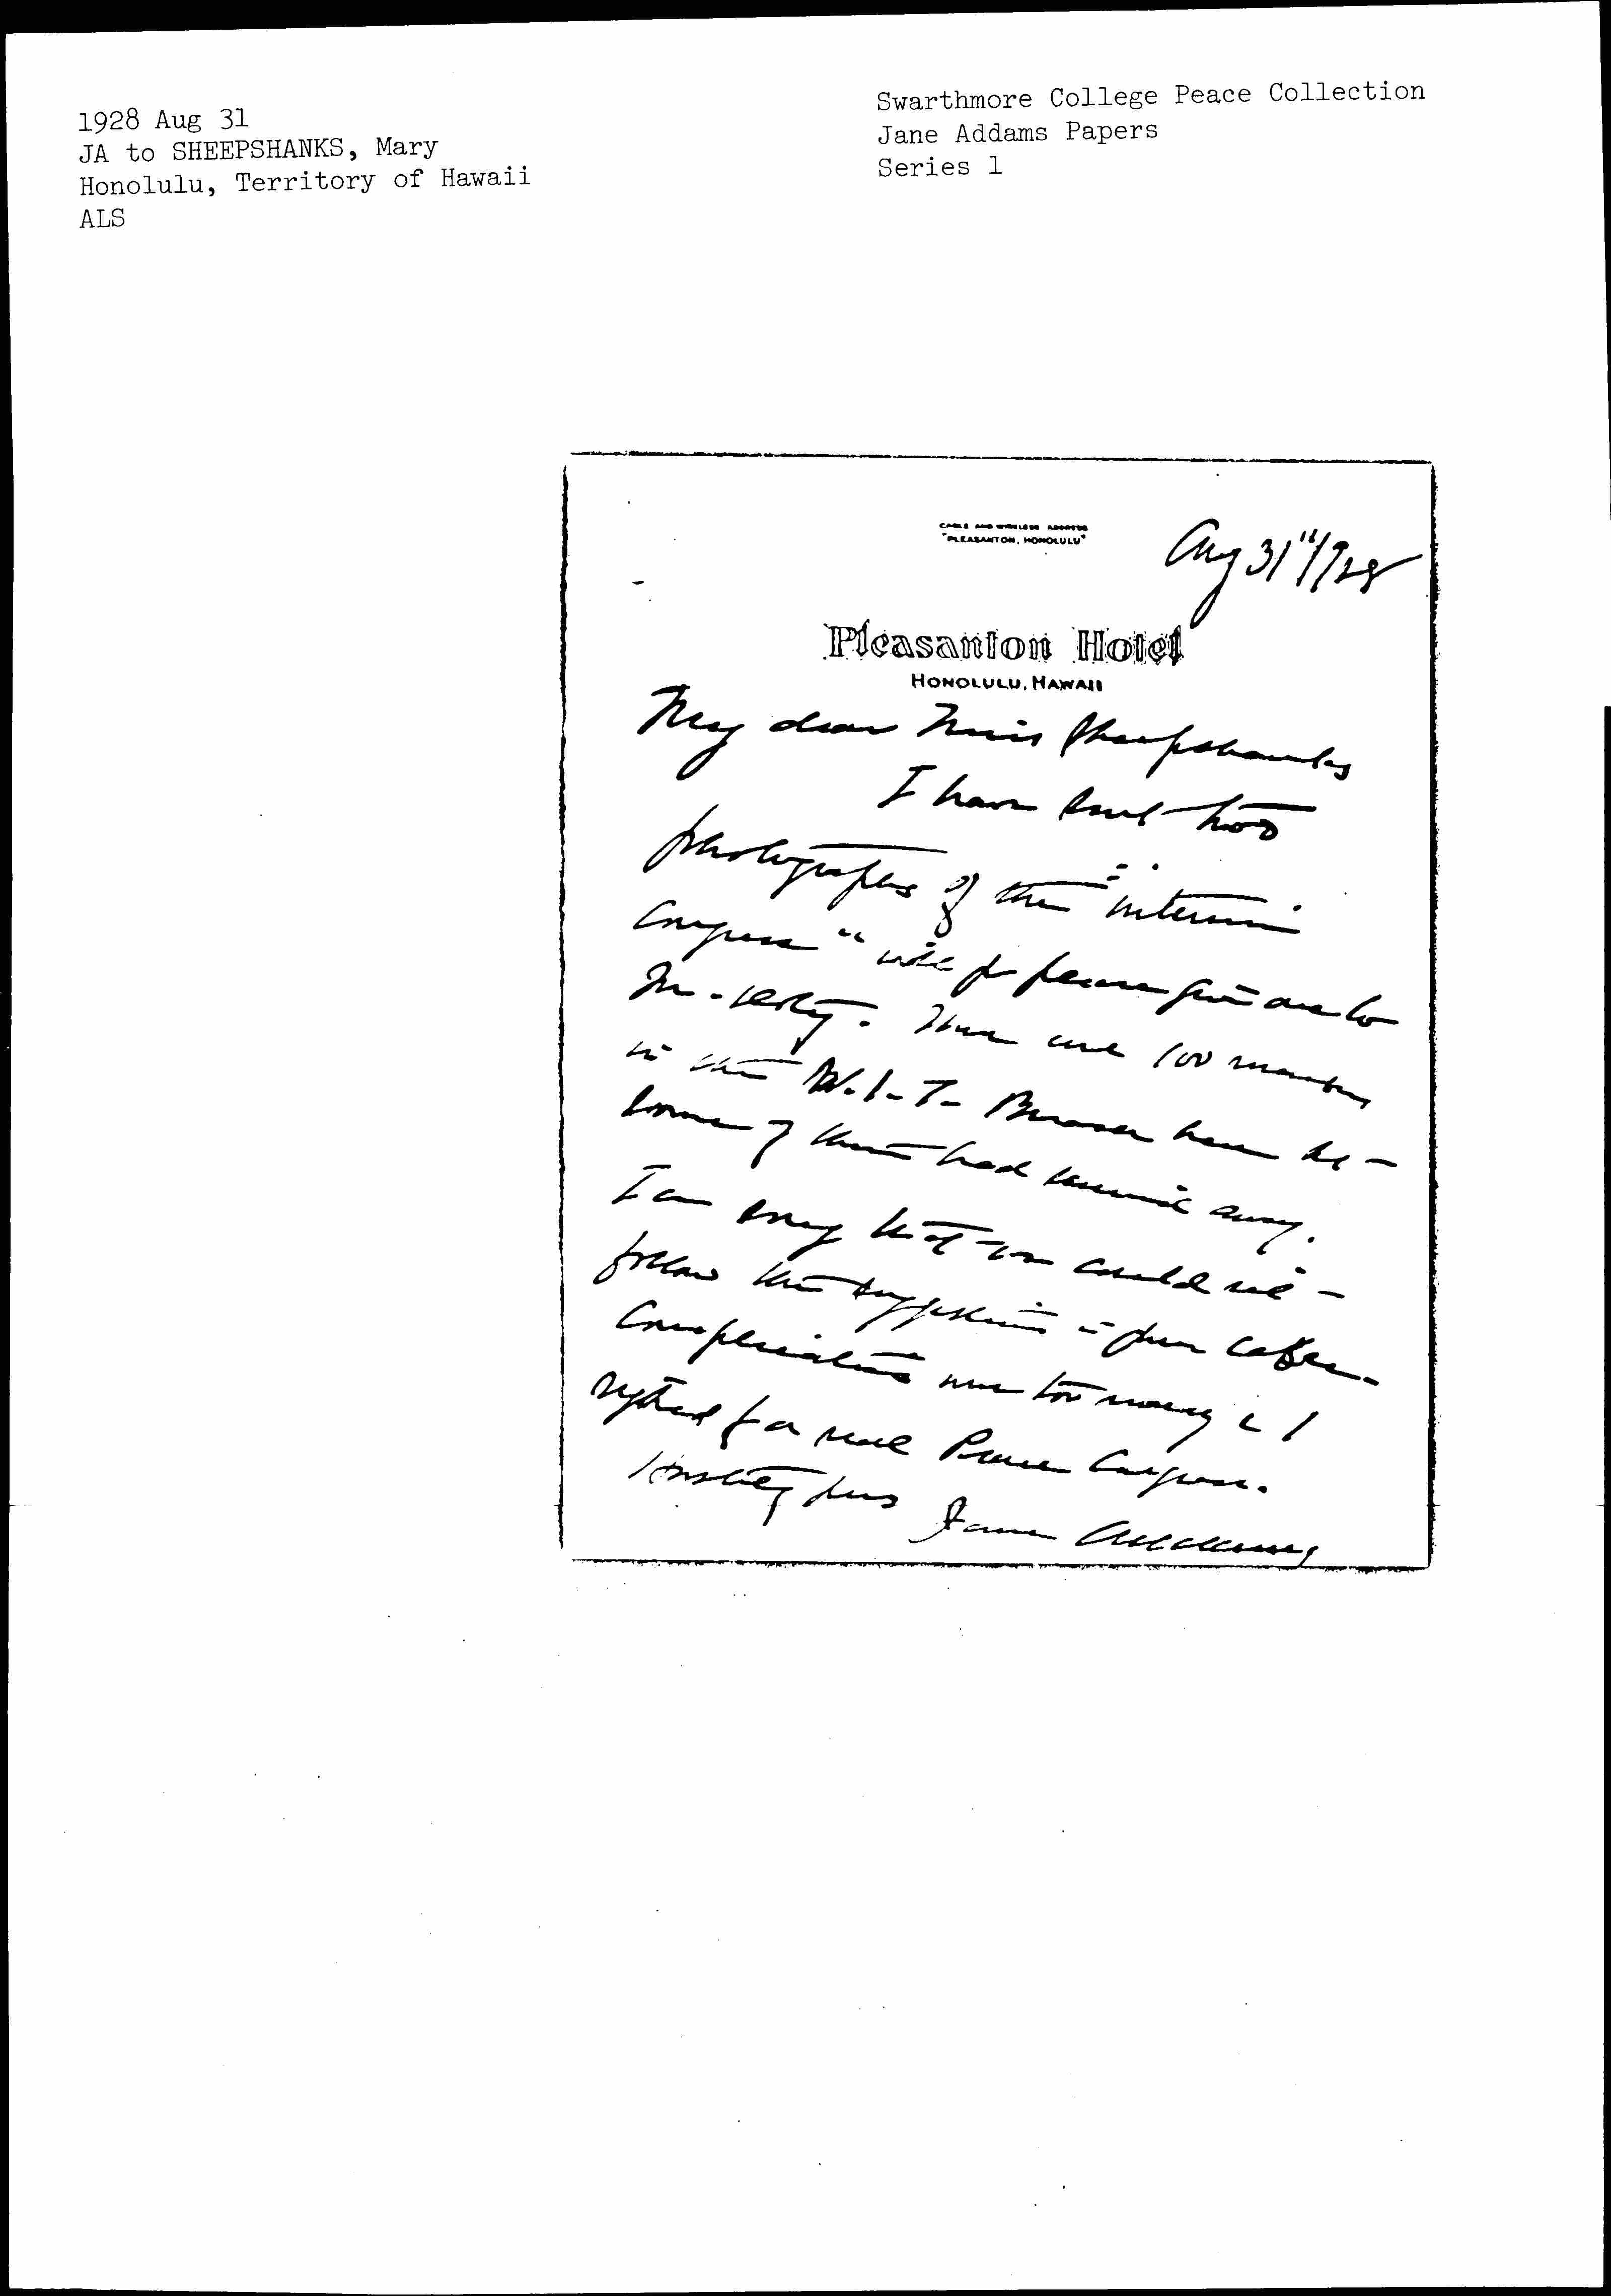 1928 Aug 31
JA to SHEEPSHANKS, Mary
Honolulu, Territory of Hawaii
ALS
Swarthmore College Peace Collection
Jane Addams Papers
Series 1
CABLE AND WIRELESS ADDRESS
"PLEASANTON, HONOLULU"
Aug 31"/928
Pleasanton Hotel
HONOLULU, HAWAII
My dear Miss Sheepshanks
I have sent two
photographs of the "interim
Congress" will you please give one to
There are 100 members
in the W.I.L. here
some of them had away.
I am sorry that we could not
follow the suggestion in your cable.
Complications were too many & I
for a real Peace Congress.
yours Jane Addams